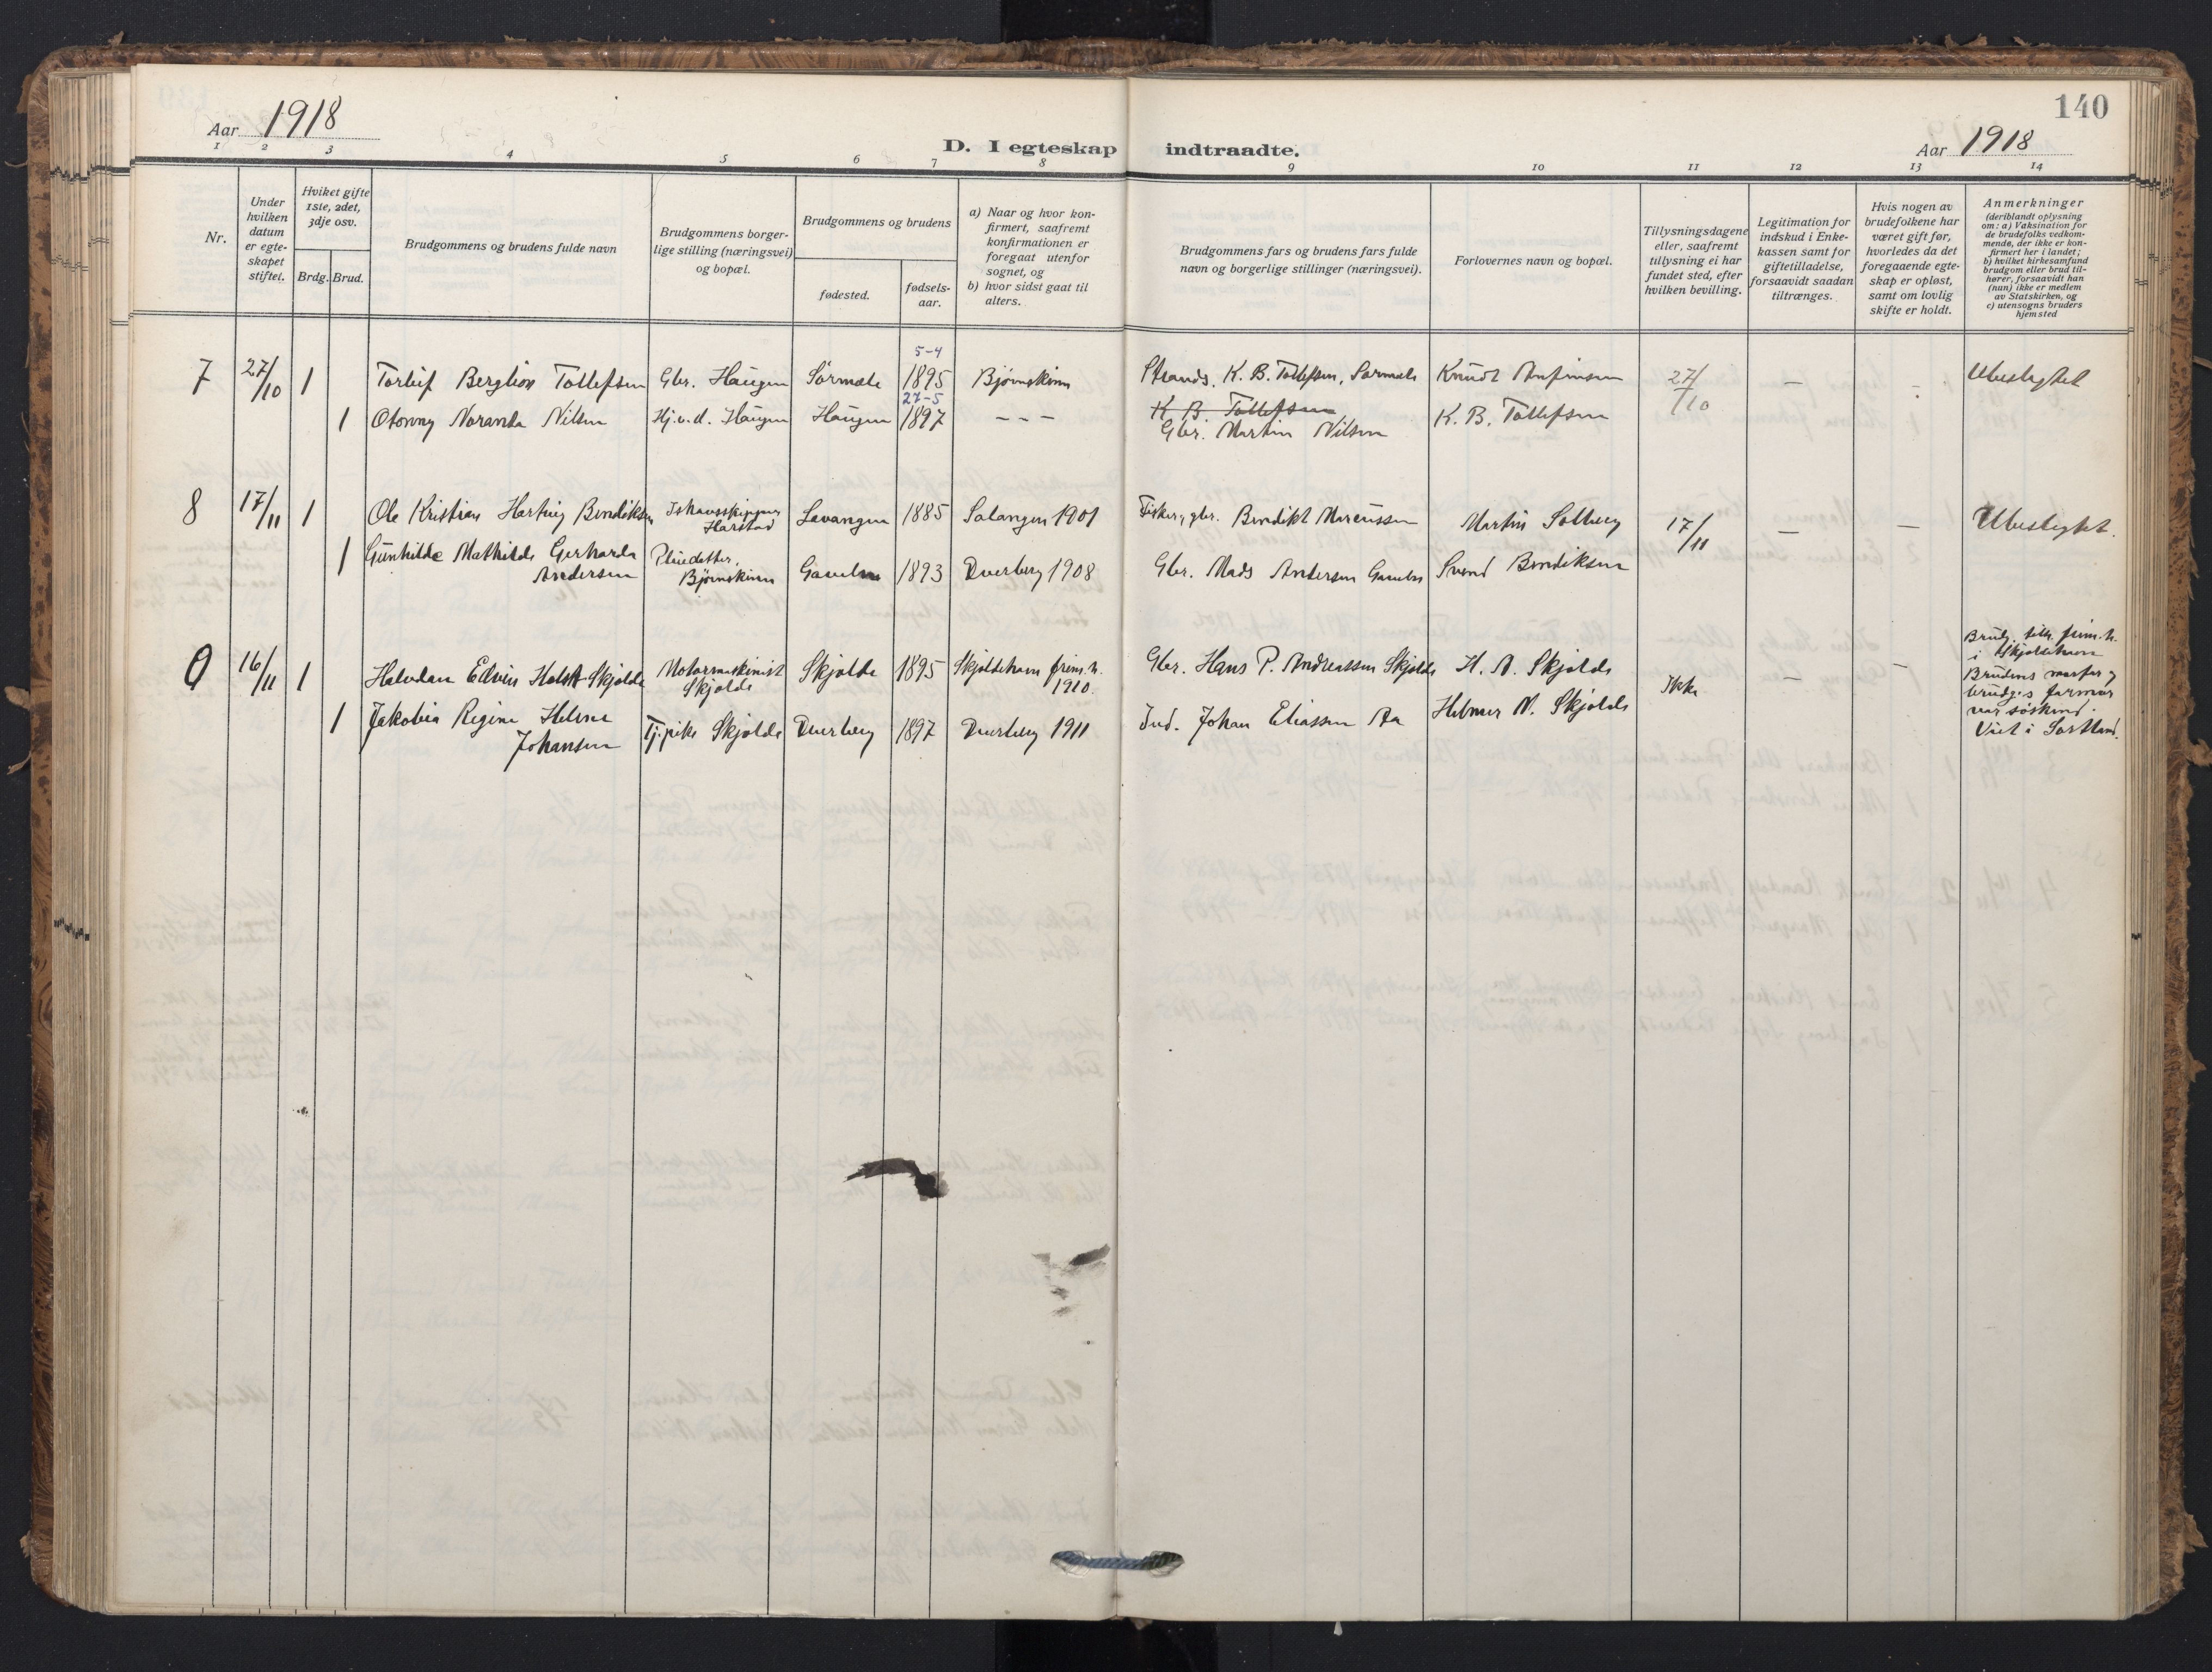 140
Aar 1918
D. I egteskap indtraadte.
Aar 1918
1 2 3 4 5 6 7 8 9 10 11 12 13 14
Nr.
Under hvilken datum er egte-skapet stiftet.
Hviket gifte 1ste, 2det, 3dje osv.
Brdg. Brud.
Brudgommens og brudens fulde navn
Brudgommens borger-lige stilling (næringsvei) og bopæl.
Brudgommens og brudens
fødested.
fødsels-aar.
a) Naar og hvor kon-firmert, saafremt konfirmationen er foregaat utenfor sognet, og
b) hvor sidst gaat til alters.
Brudgommens fars og brudens fars fulde navn og borgerlige stillinger (næringsvei).
Forlovernes navn og bopæl.
Tillysningsdagene eller, saafremt tillysning ei har fundet sted, efter hvilken bevilling.
Legitimation for indskud i Enke-kassen samt for giftetilladelse, forsaavidt saadan tiltrænges.
Hvis nogen av brudefolkene har været gift før, hvorledes da det foregaaende egte-skap er opløst, samt om lovlig skifte er holdt.
Anmerkninger (deriblandt oplysning om: a) Vaksination for de brudefolks vedkom-mende, der ikke er kon-firmert her i landet; b) hvilket kirkesamfund brudgom eller brud til-hører, forsaavidt han (hun) ikke er medlem av Statskirken, og c) utensogns bruders hjemsted
5-4
7 27/10 1 Torleif Berglion Tollefsen Gbr. Haugen Sørmele 1895 Bjørnskinn Strands. K. B. Tollefsen, Sørmele Knudt Arnfinsen 27/10 — — Ubeslegtet
27-5
1 Otonny Noranda Nilsen Hj.v.d. Haugen Haugen 1897 – – – K. B. Tollefsen K. B. Tollefsen
Gbr. Martin Nilsen
8 17/11 1 Ole Kristian Hartvig Bendiksen Ishavsskipper Harstad Lavangen 1885 Salangen 1901 Fisker, gbr. Bendikt Marcussen Martin Solberg 17/11 — — Ubeslegtet.
1 Gunhilde Mathilde Gerharda Andersen Pleiedatter, Bjørnskinn Gavelen 1893 Dverberg 1908 Gbr. Mads Andersen Gavelen Svend Bendiksen
16/11 1 Halvdan Edvin Holst-Skjolde Motormaskinist Skjolde Skjolde 1895 Skjoldehavn frim.h. 1910. Gbr. Hans P. Andreassen Skjolde H. A. Skjolde Ikke — — Brudg. tilh. frim.h. i Skjoldehavn
Brudens morfar og
brudg.s farmor
var søskend.
Viet i Sortland.
1 Jakobia Regine Helene Johansen Tj.pike Skjolde Dverberg 1897 Dverberg 1911 Ind. Johan Eliassen Aa Helmer N. Skjolde